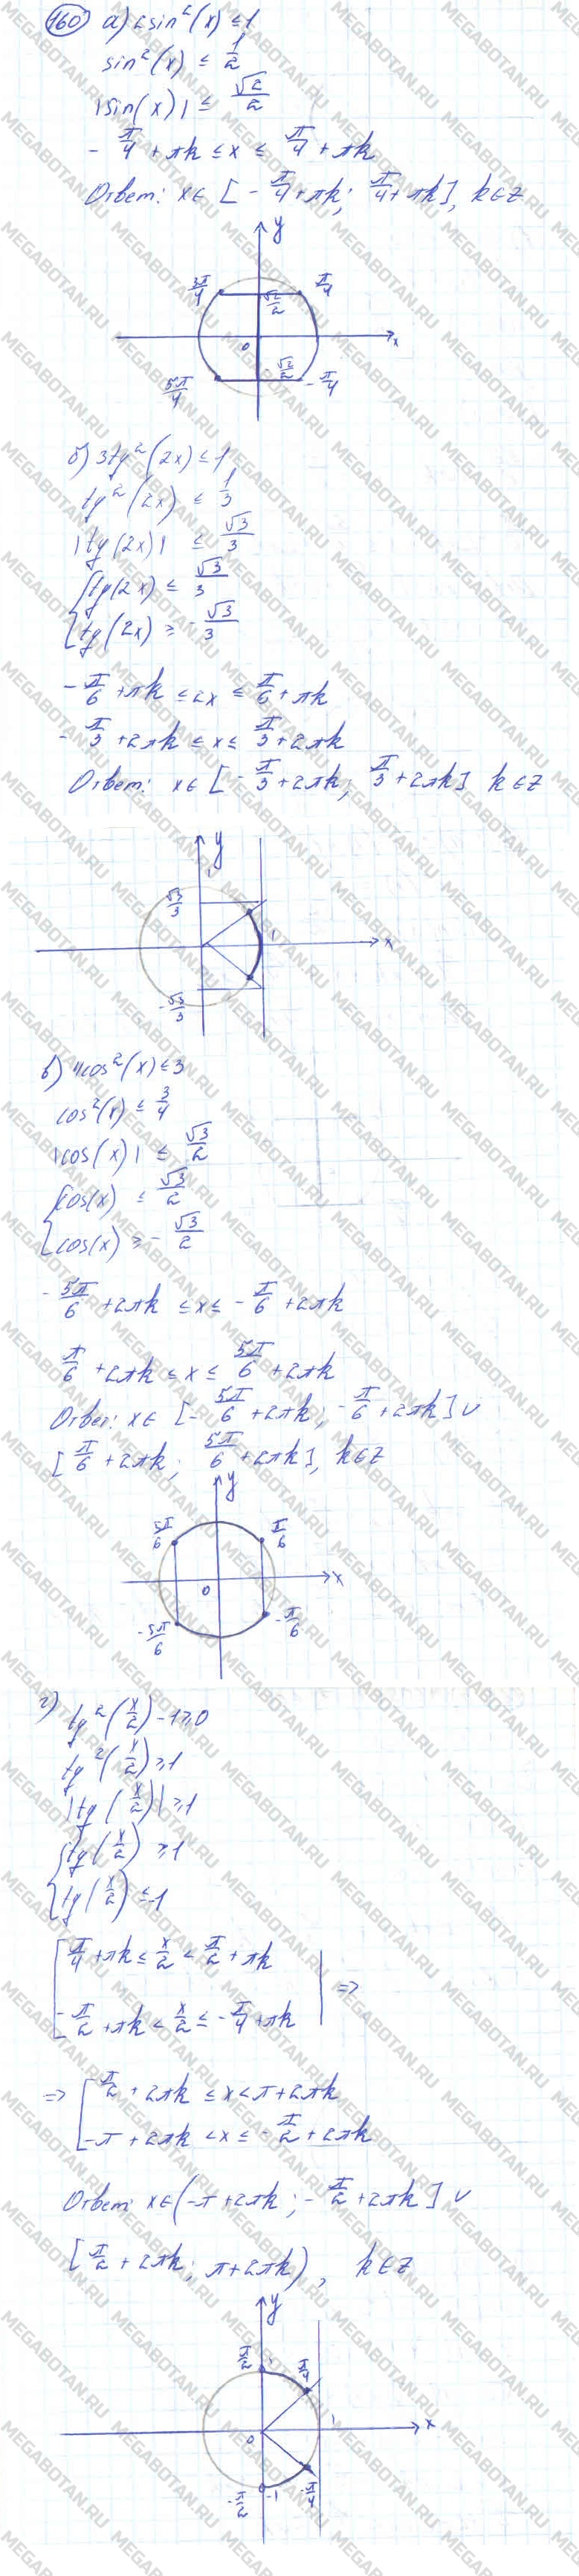 160 а) 2sin²(x) ≤ 1
sin²(x) ≤ 1/2
|sin(x)| ≤ √2/2
- π/4 + πk ≤ x ≤ π/4 + πk
Ответ: x ∈ [- π/4 + πk; π/4 + πk], k ∈ Z
y
3π/4 √2/2 π/4
0 x
5π/4 -√2/2 -π/4
б) 3tg²(2x) ≤ 1
tg²(2x) ≤ 1/3
|tg(2x)| ≤ √3/3
{ tg(2x) ≤ √3/3
tg(2x) ≥ - √3/3
- π/6 + πk ≤ 2x ≤ π/6 + πk
- π/3 + 2πk ≤ x ≤ π/3 + 2πk
Ответ: x ∈ [- π/3 + 2πk; π/3 + 2πk] k ∈ Z
y
1
√3/3
1 x
-√3/3
в) 4cos²(x) ≤ 3
cos²(x) ≤ 3/4
|cos(x)| ≤ √3/2
{ cos(x) ≤ √3/2
cos(x) ≥ - √3/2
- 5π/6 + 2πk ≤ x ≤ - π/6 + 2πk
π/6 + 2πk ≤ x ≤ 5π/6 + 2πk
Ответ: x ∈ [- 5π/6 + 2πk; - π/6 + 2πk] ∪
[π/6 + 2πk; 5π/6 + 2πk], k ∈ Z
y
5π/6 π/6
0 x
-5π/6 -π/6
г) tg²(x/2) - 1 ≥ 0
tg²(x/2) ≥ 1
|tg(x/2)| ≥ 1
{ tg(x/2) ≥ 1
tg(x/2) ≤ -1
[ π/4 + πk ≤ x/2 < π/2 + πk
- π/2 + πk < x/2 ≤ - π/4 + πk | =>
=> [ π/2 + 2πk ≤ x < π + 2πk
-π + 2πk < x ≤ - π/2 + 2πk
Ответ: x ∈ (-π + 2πk; - π/2 + 2πk] ∪
[π/2 + 2πk; π + 2πk), k ∈ Z
y
π/2 1 π/4
0 1 x
-π/2 -1 -π/4
MEGABOTAN.RU